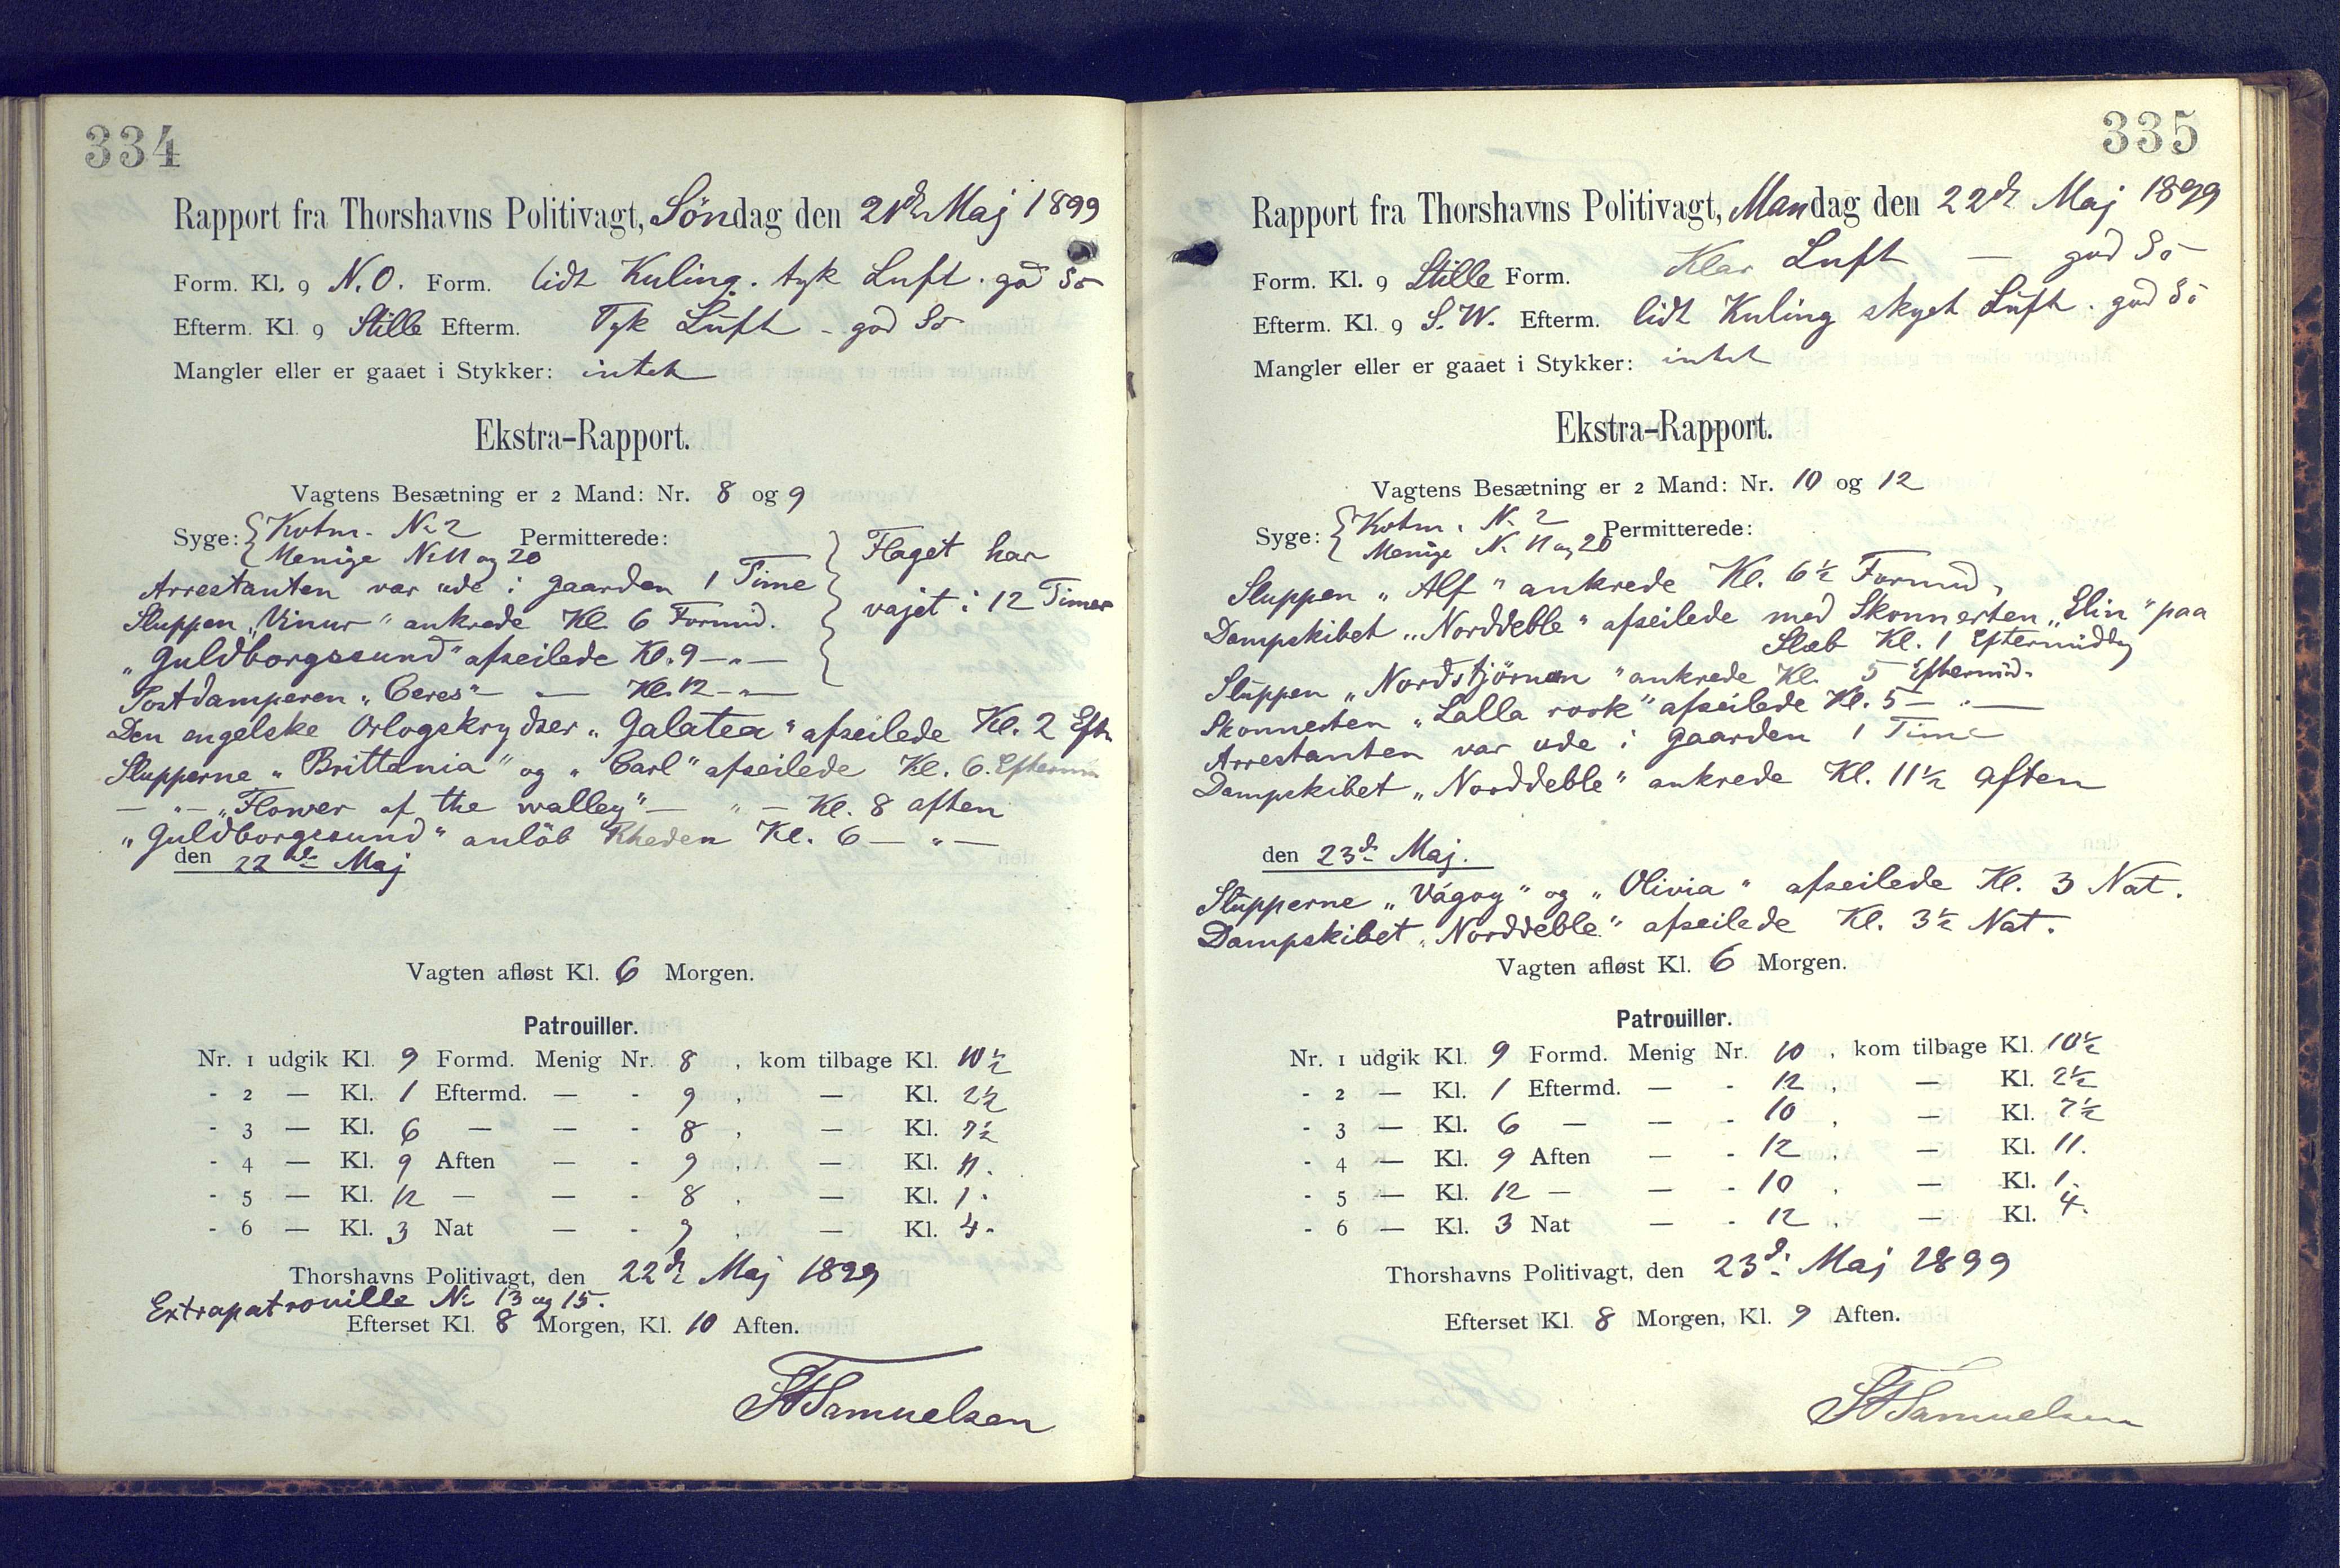 334
Rapport fra Thorshavns Politivagt, Söndag den 21de Maj 1899
Form. Kl. 9 N.O. Form. lidt Kuling. tyk Luft. god Sö
Efterm. Kl. 9 Stille Efterm. Tyk Luft - god Sö
Mangler eller er gaaet i Stykker: intet
Ekstra-Rapport.
Vagtens Besætning er 2 Mand: Nr. 8 og 9
Syge: { Kotm. No 2 Permitterede:
Menige No 11 og 20
Arrestanten var ude i gaarden 1 Time
Sluppen „Vinur" ankrede Kl. 6 Formid.
„Guldborgssund" afseilede Kl. 9 — " —
Postdamperen „Ceres" — Kl. 12 — " —
} Flaget har
vajet i 12 Timer
Den engelske Orlogskrydser „Galatea" afseilede Kl. 2 Eftm
Slupperne „Brittania" og „Carl" afseilede Kl. 6. Eftermi
— " — „Flower of the walley" — " — Kl. 8 aften
„Guldborgssund" anlöb Rheden Kl. 6 — " —
den 22de Maj
Vagten afløst Kl. 6 Morgen.
Patrouiller.
Nr. 1 udgik Kl. 9 Formd. Menig Nr. 8 , kom tilbage Kl. 10½
- 2 — Kl. 1 Eftermd. — - 9 , — Kl. 2½
- 3 — Kl. 6 — — - 8 , — Kl. 7½
- 4 — Kl. 9 Aften — - 9 , — Kl. 11.
- 5 — Kl. 12 — — - 8 , — Kl. 1.
- 6 — Kl. 3 Nat — - 9 , — Kl. 4.
Thorshavns Politivagt, den 22de Maj 1899
Extrapatrouille No 13 og 15.
Efterset Kl. 8 Morgen, Kl. 10 Aften.
Samuelsen
335
Rapport fra Thorshavns Politivagt, Mandag den 22de Maj 1899
Form. Kl. 9 Stille Form. Klar Luft — god Sö
Efterm. Kl. 9 S.W. Efterm. lidt Kuling skyet Luft. god Sö
Mangler eller er gaaet i Stykker: intet
Ekstra-Rapport.
Vagtens Besætning er 2 Mand: Nr. 10 og 12
Syge: { Kotm. No 2 Permitterede:
Menige No 11 og 20
Sluppen „Alf" ankrede Kl. 6½ Formid.
Dampskibet „Norddeble" afseilede med Skonnerten „Elin" paa
Slæb Kl. 1 Eftermiddag
Sluppen „Nordstjörnen" ankrede Kl. 5 Eftermid.
Skonnerten „Lalla rook" afseilede Kl. 5 — " —
Arrestanten var ude i gaarden 1 Time
Dampskibet „Norddeble" ankrede Kl. 11½ aften
den 23de Maj.
Slupperne „Vágoy" og „Olivia" afseilede Kl. 3 Nat.
Dampskibet „Norddeble" afseilede Kl. 3½ Nat.
Vagten afløst Kl. 6 Morgen.
Patrouiller.
Nr. 1 udgik Kl. 9 Formd. Menig Nr. 10 , kom tilbage Kl. 10½
- 2 — Kl. 1 Eftermd. — - 12 , — Kl. 2½
- 3 — Kl. 6 — — - 10 , — Kl. 7½
- 4 — Kl. 9 Aften — - 12 , — Kl. 11.
- 5 — Kl. 12 — — - 10 , — Kl. 1.
- 6 — Kl. 3 Nat — - 12 , — Kl. 4.
Thorshavns Politivagt, den 23de Maj 1899
Efterset Kl. 8 Morgen, Kl. 9 Aften.
Samuelsen